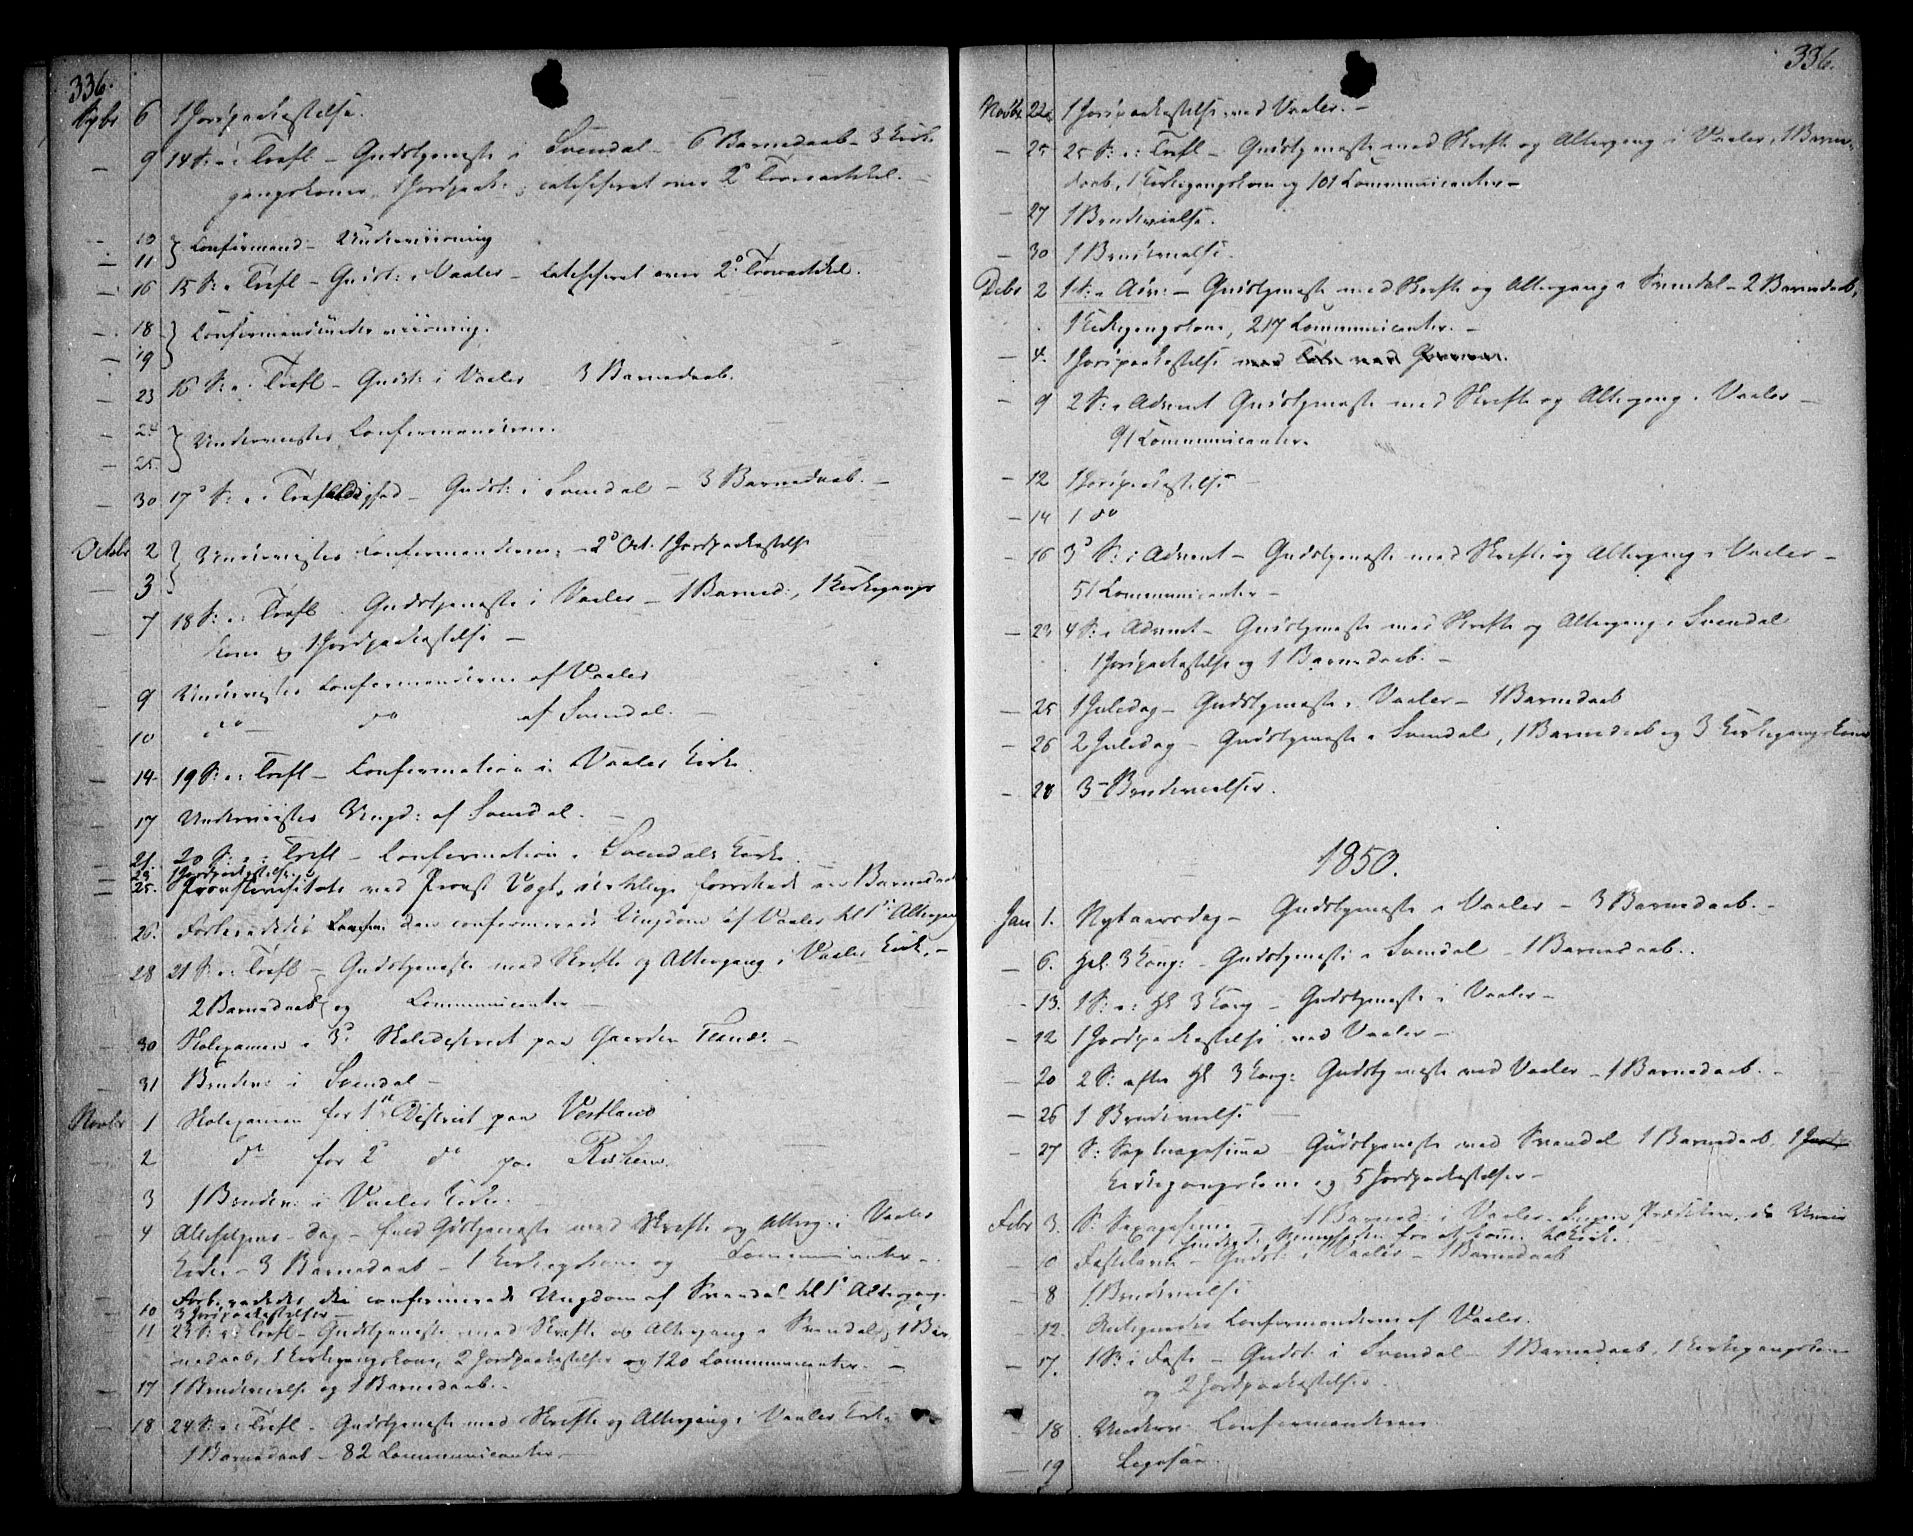 336.
Sptbr 6 1 Jordpaakastelse.
— 9 14 S: e: Trefl — Gudstjeneste i Svendal — 6 Barnedaab — 3 Kirke-
gangskoner, 1 Jordpaak: catechiseret over 2d Troesartikel. —
— 10 } Confirmand — Underviisning
— 11
— 16 15 S: e Trefl — Gudst: i Vaaler — catechiseret over 2d Troesartikel.
— 18 } Confirmandunderviisning.
— 19
— 23 16 S: e: Trefl — Gudst: i Vaaler 3 Barnedaab.
— 24 } Underviistes Confirmanderne.
— 25.
— 30 17d S: e: Trefoldighed — Gudst: i Svendal — 3 Barnedaab. —
Octobr 2 } Underviistes Confirmanderne, — 2d Oct. 1 Jordpaakastelse
3
— 7 18 S: e: Trefl. Gudstjeneste i Vaaler — 1 Barned:, 1 Kirkegangs-
kone og 1 Jordpaakastelse —
— 9 Underviistes Confirmanderne af Vaaler
10 do — do af Svendal. —
— 14 19 S: e: Trefl — Confirmation i Vaaler Kirke.
— 17 Underviistes Ungd: af Svendal. —
— 21. 20 S: e: Trefl — Confirmation i Svendals Kirke.
— 23. 1 Jordpaakastelse
— 25. Provstevisitats ved Provst Vogt, Barnedaab
— 26. Forberedtes den confirmerede Ungdom af Vaaler til 1ste Altergang
— 28 21 S: e: Trefl — Gudstjeneste med Skrifte og Altergang i Vaaler Kirke. —
2 Barnedaab og Communicanter —
— 30 Skolexamen i 3d Skoledistrict paa Gaarden —
— 31 Brudev: i Svendal —
Novbr 1 Skolexamen for 1ste District paa Vestland
2 do for 2d do paa
3 1 Brudev: i Vaaler Kirke.
4 Allehelgens-dag — Gudstjeneste med Skrifte og Alterg: i Vaaler
Kirke — 3 Barnedaab — 1 Kirkegkone og Communicanter —
Forberedtes den confirmerede Ungdom af Svendal til 1ste Altergang.
10 3 Jordpaakastelser —
11 23 S: e: Trefl — Gudstjeneste med Skrifte og Altergang i Svendal, 1 Bar-
nedaab, 1 Kirkegangskone, 2 Jordpaakastelser og 120 Communicanter. —
— 17 1 Brudevielse og 1 Barnedaab. —
— 18 24 S: e: Trefl — Gudstjeneste med Skrifte og Altergang i Vaaler Kirke
1 Barnedaab — 82 Communicanter —
336.
Novbr 22 1 Jordpaakastelse ved Vaaler. —
— 25 25 S: e: Trefl — Gudstjeneste med Skrifte og Altergang i Vaaler, 1 Barne-
daab, 1 Kirkegangskone og 101 Communicanter —
— 27 1 Brudevielse.
— 30 1 Brudevielse.
Decbr 2 1 S: i Adv: — Gudstjeneste med Skrifte og Altergang i Svendal — 2 Barnedaab,
1 Kirkegangskone, 217 Communicanter. —
— 4. 1 Jordpaakastelse
— 9 2 S: i Advent Gudstjeneste med Skrifte og Altergang i Vaaler —
91 Communicanter.
— 12 1 Jordpaakastelse —
— 14 1 do
— 16 3d S: i Advent — Gudstjeneste med Skrifte og Altergang i Vaaler —
51 Communicanter —
— 23 4 S: i Advent — Gudstjeneste med Skrifte og Altergang i Svendal
1 Jordpaakastelse og 1 Barnedaab. —
— 25 1 Juledag — Gudstjeneste i Vaaler — 1 Barnedaab
— 26 2 Juledag — Gudstjeneste i Svendal, 1 Barnedaab og 3 Kirkegangskoner
— 28 3 — Brudevielser.
1850.
Jan 1. Nytaarsdag — Gudstjeneste i Vaaler — 3 Barnedaab. —
— 6. Hel. 3 Kong: — Gudstjeneste i Svendal — 1 Barnedaab. .
— 13. 1 S: e: Hl 3 Kong — Gudstjeneste i Vaaler —
— 12 1 Jordpaakastelse ved Vaaler —
— 20 2 S: efter Hl 3 Kong: Gudstjeneste ved Vaaler — 1 Barnedaab. —
— 26 1 Brudevielse
— 27 S: Septuagesima — Gudstjeneste ved Svendal 1 Barnedaab, 1
Kirkegangskone og 5 Jordpaakastelser —
Febr 3. S: Sexagesima — 1 Barned: i Vaaler. Ingen Prædiken, da Uveir
hindrede Menigheden for at komme til Kirke.
— 10 Fastelavn — Gudst: i Vaaler — 1 Barnedaab
— 8 1 Brudevielse
— 12. Antegnedes Confirmanderne af Vaaler.
— 17. 1 S: i Faste — Gudst: i Svendal — 1 Barnedaab, 1 Kirkegangskone
og 2 Jordpaakastelser.
— 18. Underv: Confirmanderne.
— 19 Ligesaa.